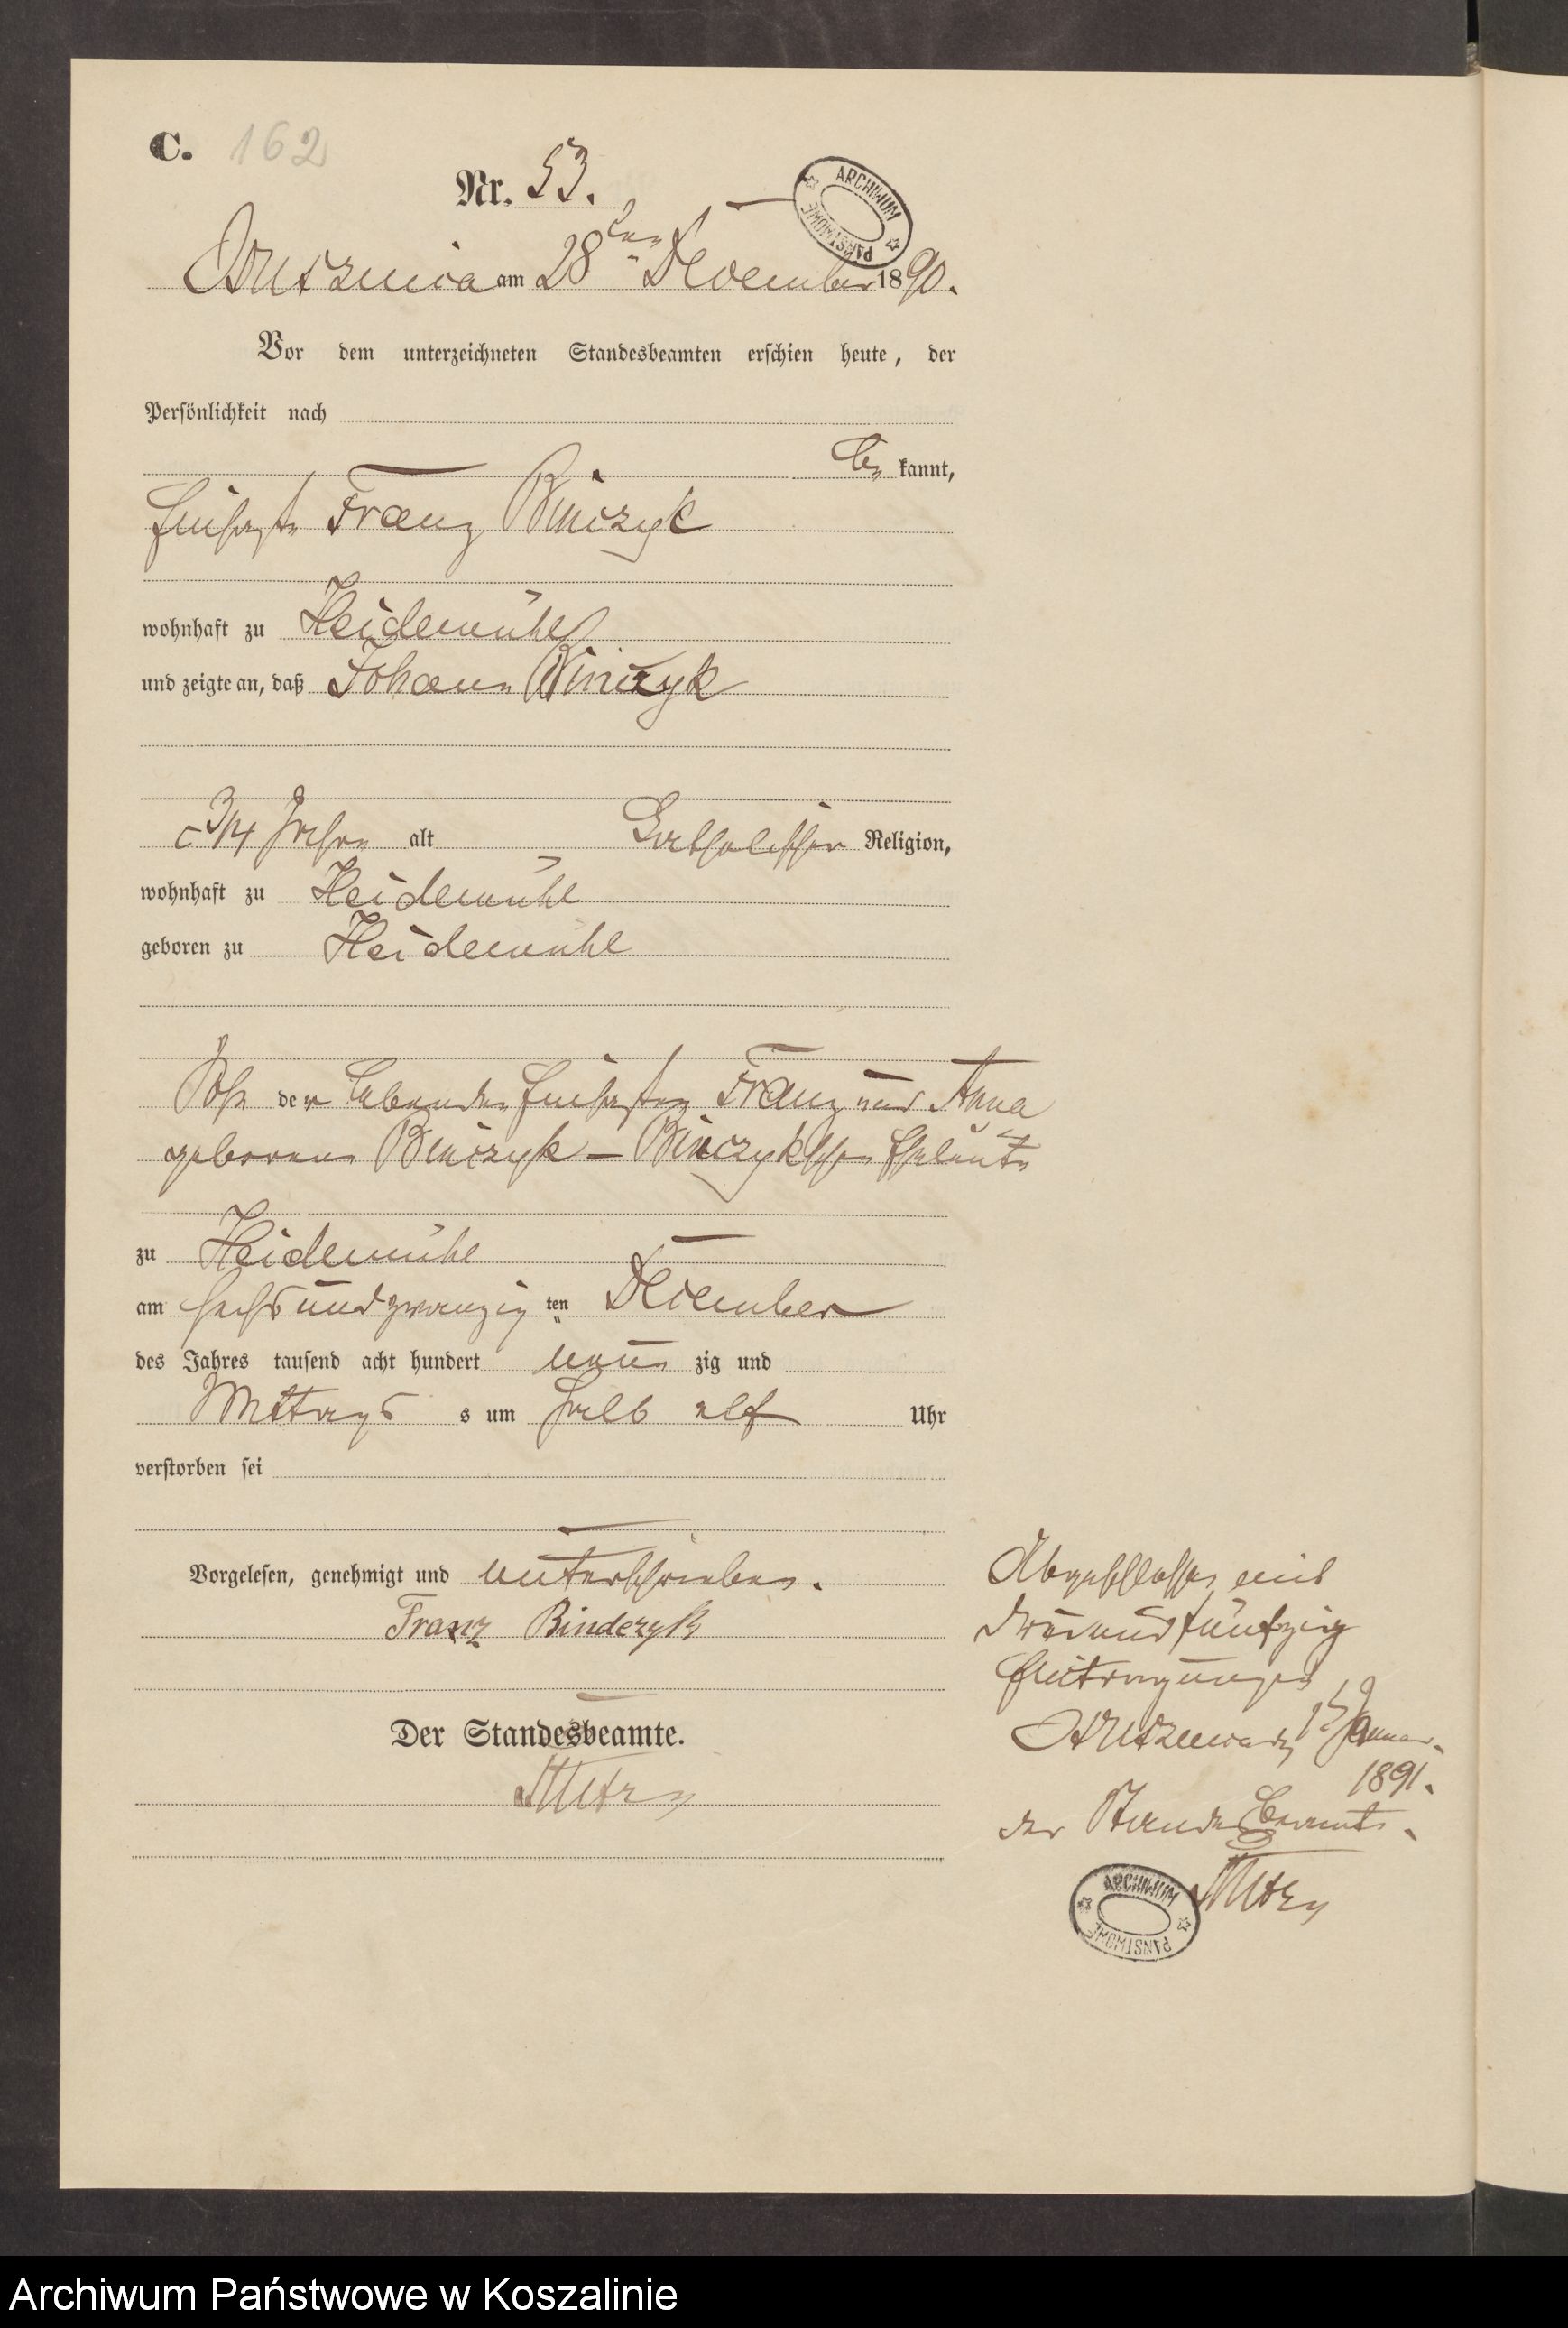 C. 162
Nr. 53.
ARCHIWUM PAŃSTWOWE
am 28ten Dezember 1890.
Vor dem unterzeichneten Standesbeamten erschien heute, der
Persönlichkeit nach
be kannt,
Franz Binczyk
wohnhaft zu Heidemühl
und zeigte an, daß Johann Binczyk
3/4 Jahr alt katholischer Religion,
wohnhaft zu Heidemühl
geboren zu Heidemühl
Sohn der Franz und Anna
geborene Binczyk – Binczykschen Eheleute
zu Heidemühl
am sechsundzwanzig ten Dezember
des Jahres tausend acht hundert neun zig und
Mittags s um halb elf Uhr
verstorben sei
Vorgelesen, genehmigt und unterschrieben.
Franz Binderzyk
Der Standesbeamte.
Abgeschlossen mit
dreiundfünfzig
Eintragungen
Januar
1891.
der Standesbeamte.
ARCHIWUM PAŃSTWOWE
Archiwum Państwowe w Koszalinie